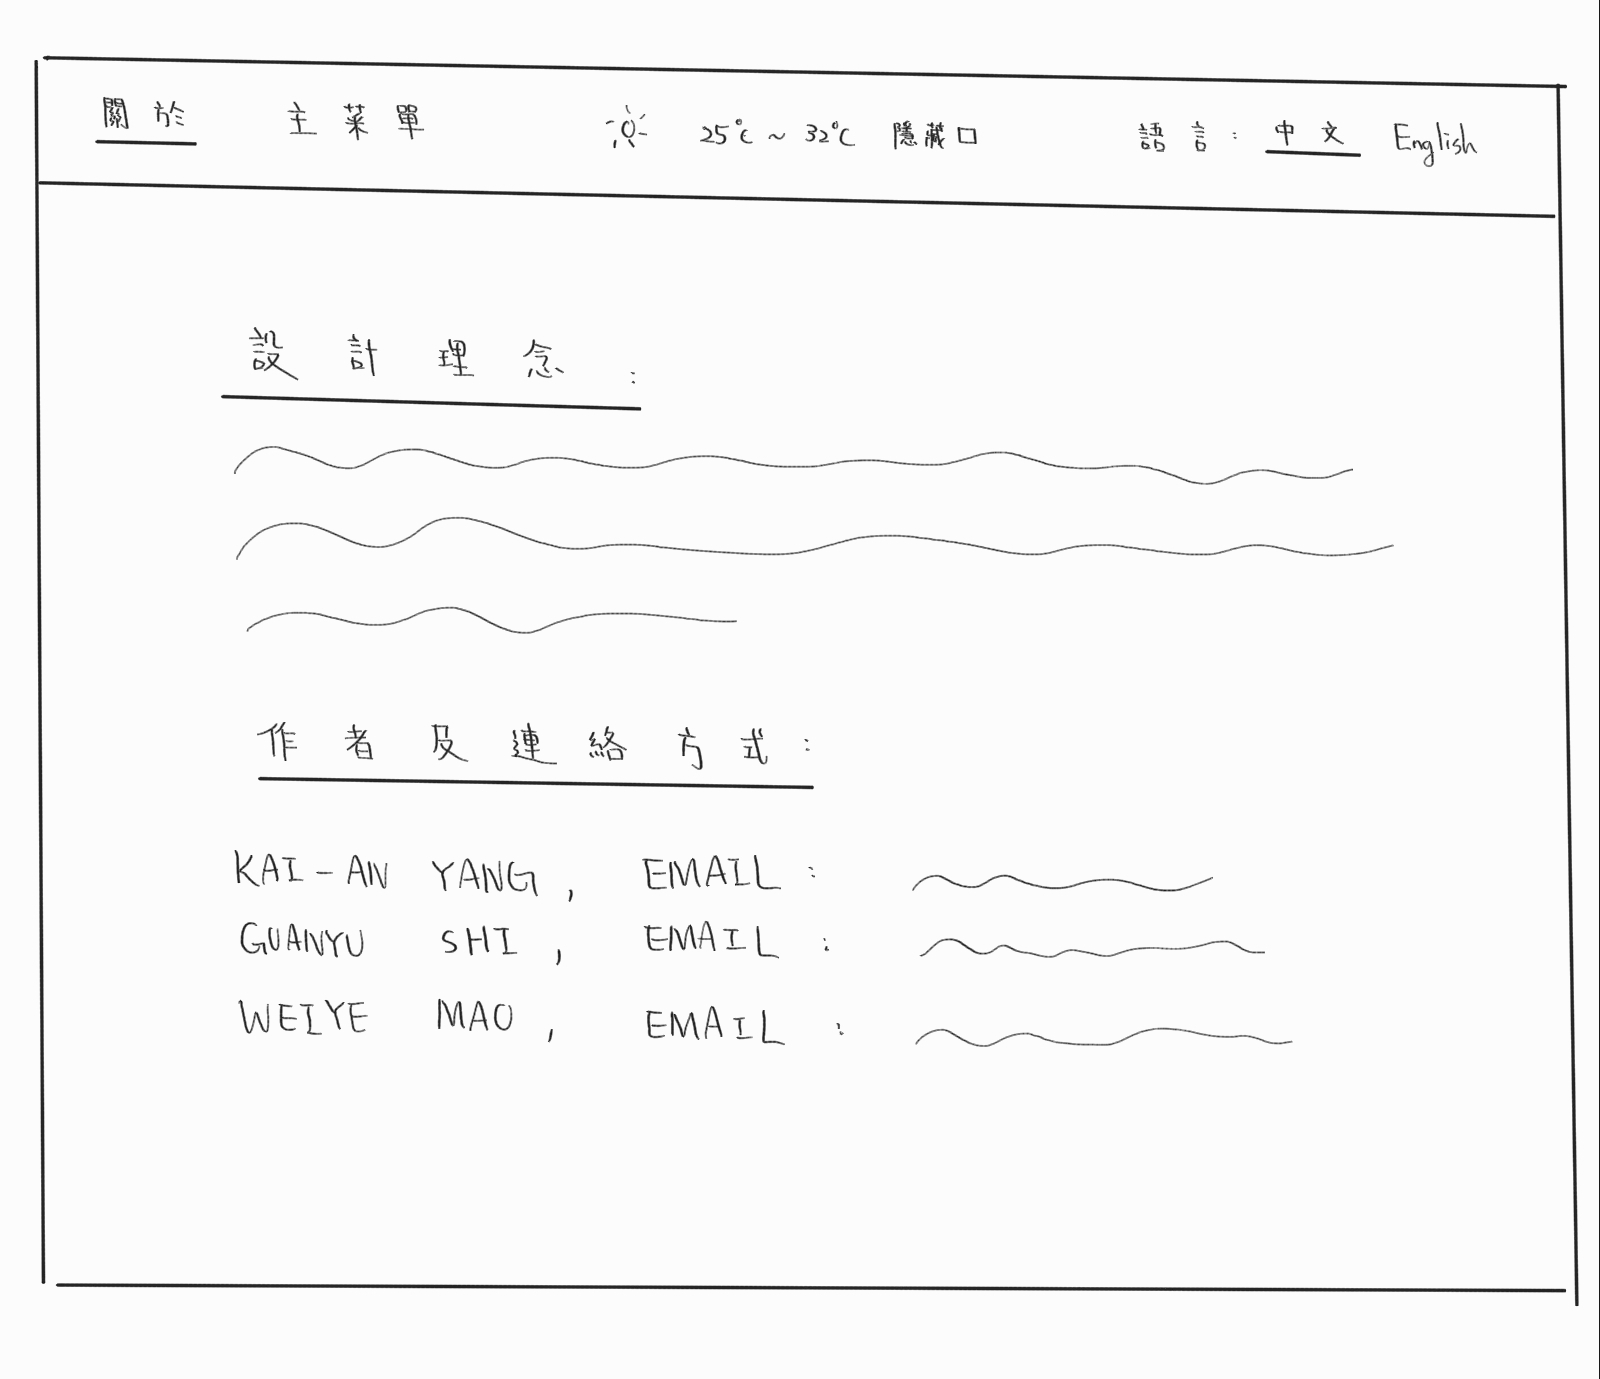 關於 主菜單 25°C ~ 32°C 隱藏口 語言: 中文 English
設計理念:
作者及連絡方式:
KAI-AN YANG, EMAIL:
GUANYU SHI, EMAIL:
WEIYE MAO, EMAIL: